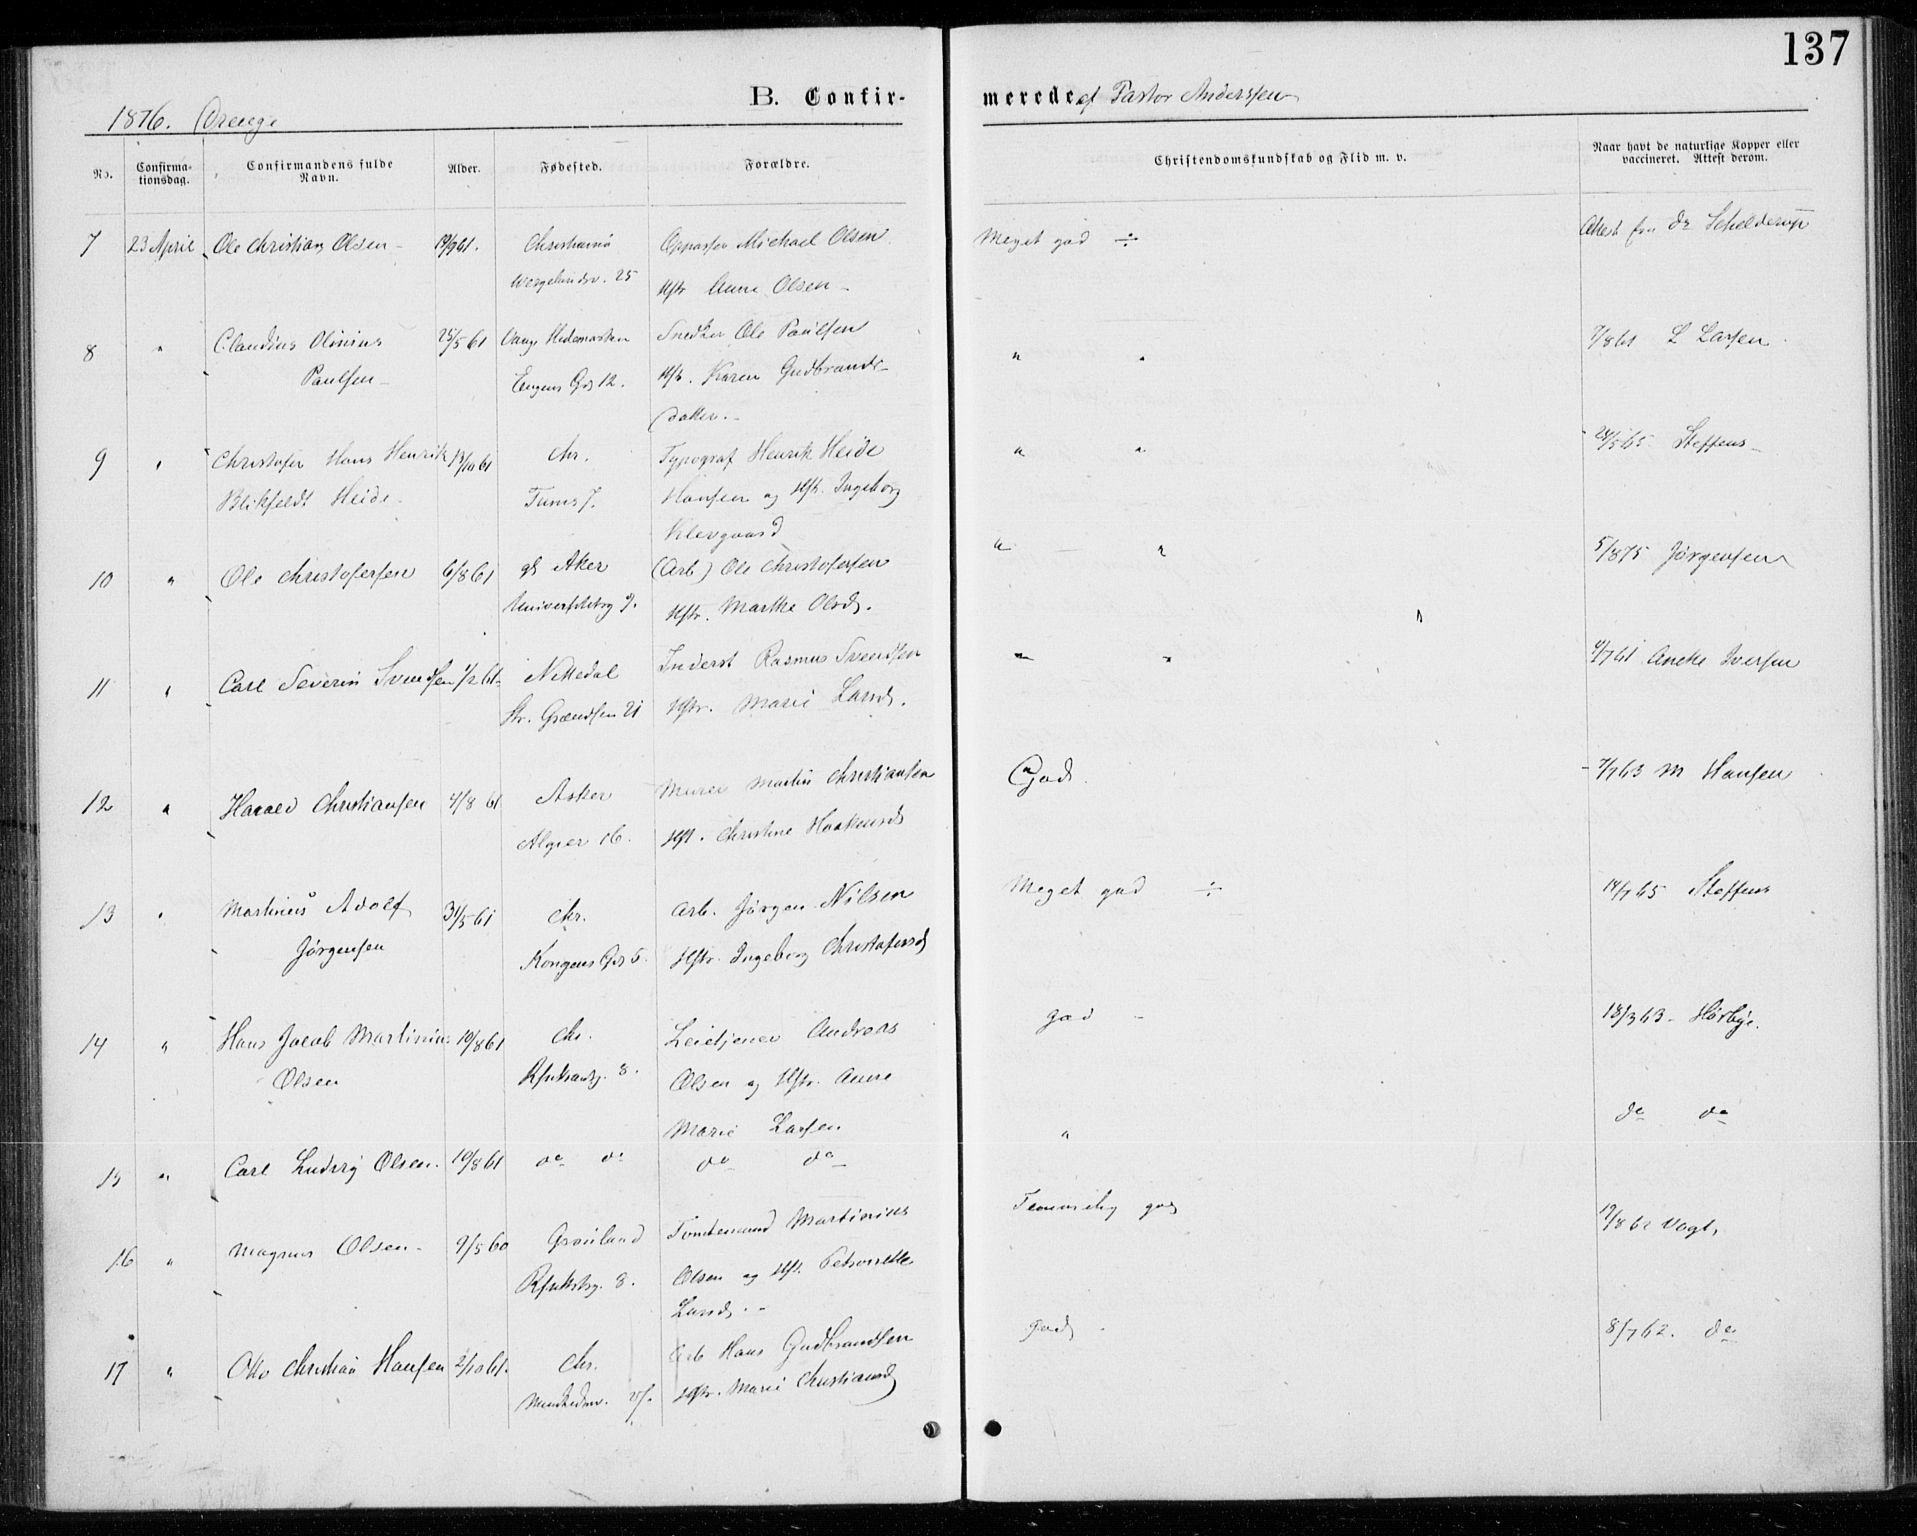 137
1876. Drenge
B. Confirmerede af Pastor Anderssen
No. Confirmationsdag. Confirmandens fulde Navn. Alder. Fødested. Forældre. Christendomskundskab og Flid m. v. Naar havt de naturlige Kopper eller vaccineret. Attest derom.
7 23 April Ole Christian Olsen 19/9 61. Christiania Michael Olsen Meget god ÷ Attest fra Dr Schelderup
Wergelandsv. 25 Hstr Anne Olsen
8 " Claudius Olinius 25/5 61 Vang Hedemarken Snedker Ole Paulsen " " 7/8 61 L Larsen
Paulsen Engens Gd 12. Hstr. Karen Gudbrands-
datter.
9 " Christofer Hans Henrik 13/10 61 Chr. Typograf Henrik Heide " " 24/5 65 Steffens
Blikfeldt Heide Hansen og Hstr. Ingeborg
Klevgaard
10 " Ole Christofersen 6/8 61 Aker (Arb) Ole Christofersen " " 5/8 75 Jørgensen
Universitetsg 9. Hstr. Marthe Olsd.
11 " Carl Severin Svendsen 1/2 61 Nittedal Inderst Rasmus Svendsen " " 4/7 61 Iversen
Str. Grændsen 21 Hstr. Marie Larsd.
12 " Harald Christiansen 4/8 61 Asker Murer Martin Christiansen God. 7/7 63 M Hansen
Algier 16. Hst. Christine Haakensd
13 " Martinus Adolf 31/5 61 Chr. Arb. Jørgen Nilsen Meget god ÷ 14/7 65 Steffens
Jørgensen Kongens Gd 5. Hstr. Ingeborg Christofersd
14 " Hans Jacob Martinius 10/8 61 Chr. Leietjener Andreas god 18/3 63 Hørbye.
Olsen 8. Olsen og Hstr. Anne
Marie Larsen
15 " Carl Ludvig Olsen 10/8 61 do do do do " do do
16 " Magnus Olsen 9/5 60 Grønland Tømtemand Martinius Temmelig god 19/8 62 Vogt.
8. Olsen og Hst. Petronelle
Larsd.
17 " Otto Christian Hansen 2/10 61. Chr. Arb Hans Gudbrandsen God 8/7 62. do
Hstr. Marie Christiansd